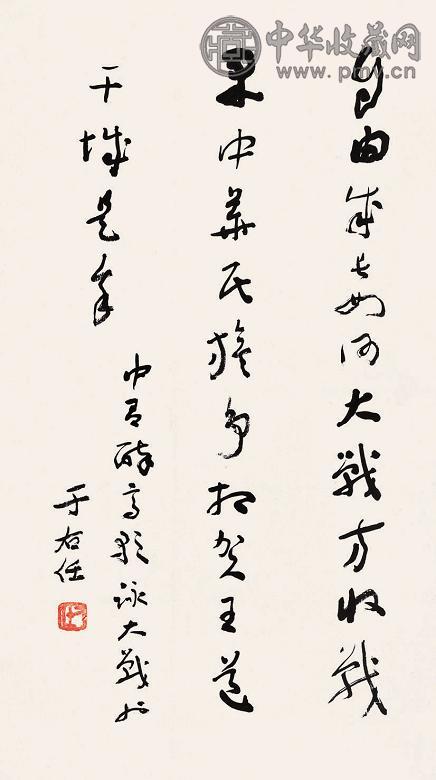 中华收藏网
www.pmv.cn
自由成長如何大戰方收戰
果中華民族爭相賀王道
干城是我
中呂醉高歌詠大戰
于右任